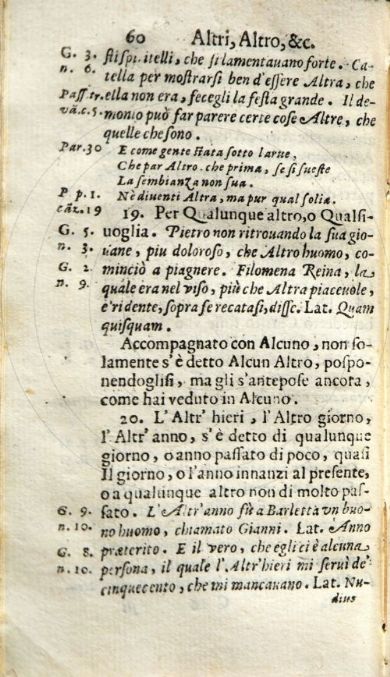 60 Altri, Altro, &c.
G. 3. sti spiritelli, che si lamentauano forte. Ca-
n. 6. tella per mostrarsi ben d'essere Altra, che
Pass.tr. ella non era, fecegli la festa grande. Il de-
vã.c.5. monio può far parere certe cose Altre, che
quelle che sono.
Par.30 E come gente stata sotto larue,
Che par Altro che prima, se si sueste
La sembianza non sua.
P p. 1. Nè diuenti Altra, ma pur qual solia.
cãz.19 19. Per Qualunque altro, o Qualsi-
G. 5. uoglia. Pietro non ritrouando la sua gio-
n. 3. uane, piu doloroso, che Altro huomo, co-
G. 2. minciò a piagnere. Filomena Reina, la
n. 9. quale era nel viso, più che Altra piaceuole,
e ridente, sopra se recatasi, disse. Lat. Quam
quisquam.
Accompagnato con Alcuno, non so-
lamente s'è detto Alcun Altro, pospo-
nendoglisi, ma gli s'antepose ancora,
come hai veduto in Alcuno.
20. L'Altr' hieri, l'Altro giorno,
l'Altr' anno, s'è detto di qualunque
giorno, o anno passato di poco, quasi
Il giorno, o l'anno innanzi al presente,
o a qualunque altro non di molto pas-
G. 9. sato. L'Altr'anno fù a Barletta vn buo-
n. 10. no huomo, chiamato Gianni. Lat. Anno
G. 8. præterito. E il vero, che egli ci è alcuna
n. 10. persona, il quale l'Altr'hieri mi seruì de'
cinquecento, che mi mancauano. Lat. Nu-
dius